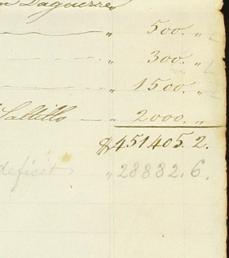 n Daguerre
" 500. "
" 300. "
" 1500. "
Saltillo " 2000. "
$451405.2.
deficit " 28882.6.